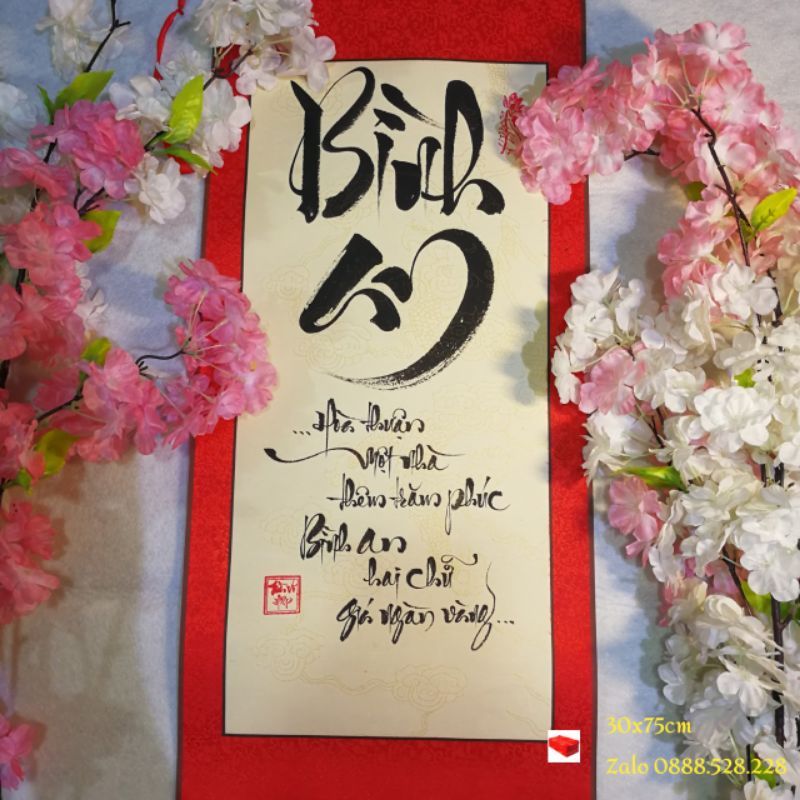 Bình
An
...Hòa thuận
một nhà
thêm trăm phúc
Bình an
hai chữ
giá ngàn vàng...
30x75cm
Zalo 0888.528.228